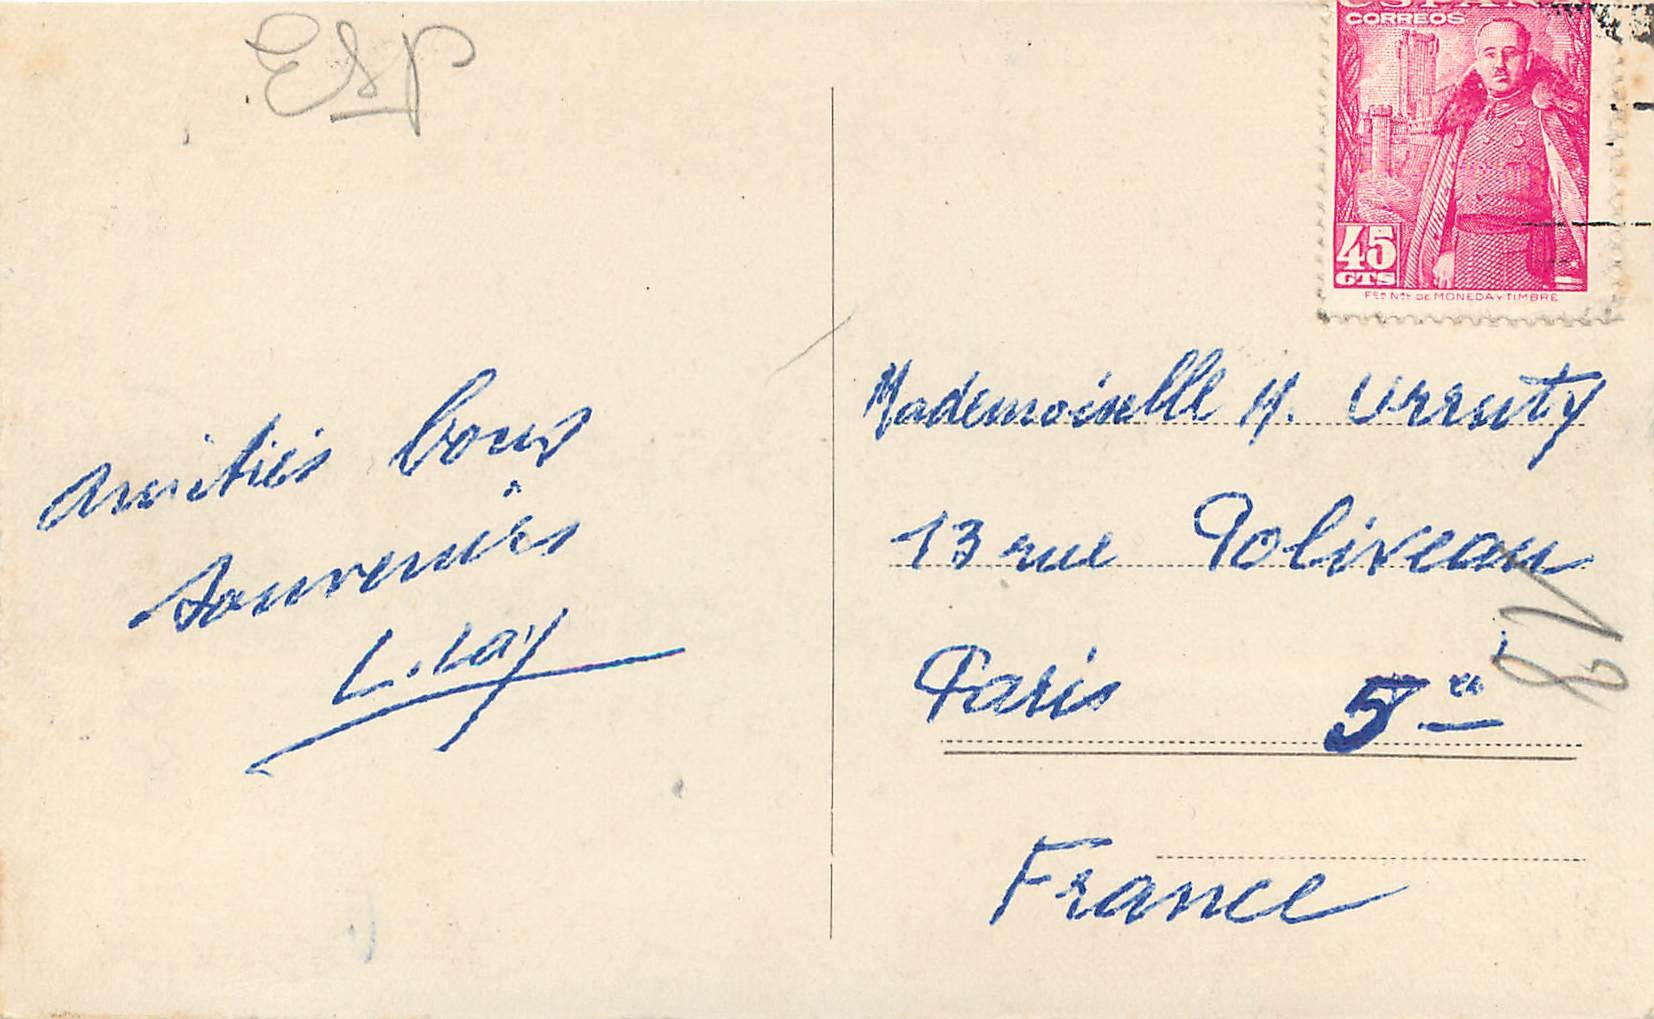 ESP
ESPAÑA
CORREOS
45
CTS
F.co N.al DE MONEDA Y TIMBRE
amitiés bons
souvenirs
L. Lay
Mademoiselle H. Urruty
13 rue Poliveau
Paris 5e
France